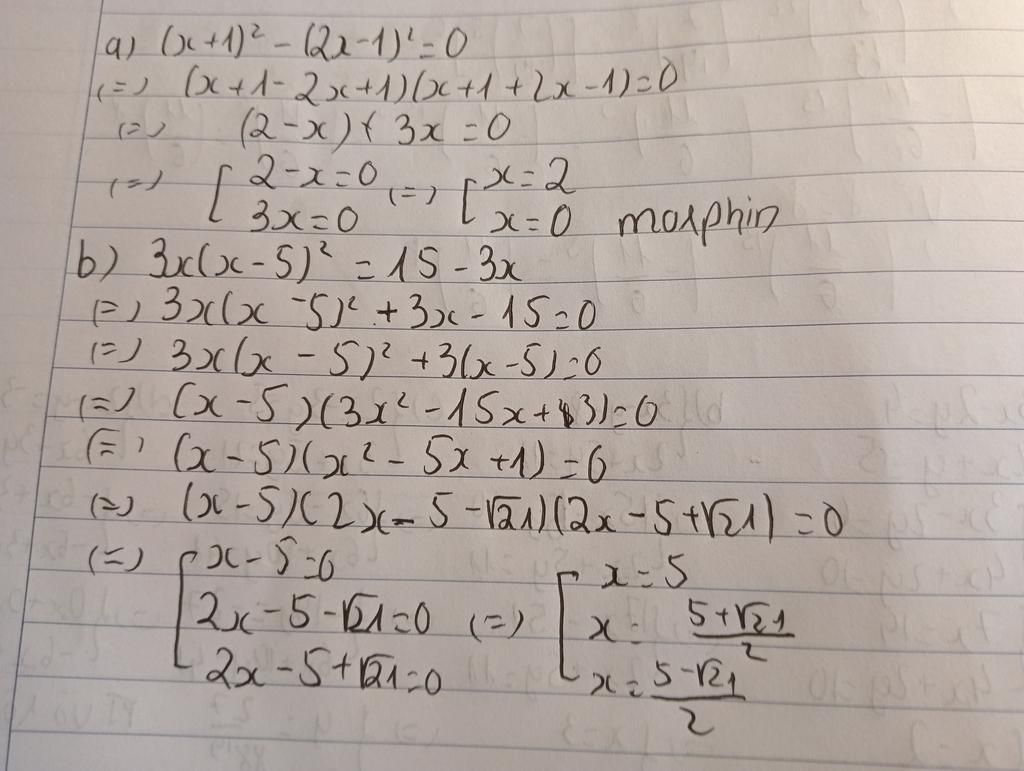 a) (x+1)² - (2x-1)² = 0
(=) (x+1-2x+1)(x+1+2x-1)=0
(=) (2-x)( 3x = 0
(=) [ 2-x=0 (=) [ x=2
3x=0 x=0 morphin
b) 3x(x-5)² = 15 - 3x
(=) 3x(x-5)² + 3x - 15=0
(=) 3x(x-5)² + 3(x-5)=0
(=) (x-5)(3x² - 15x + 3)=0
(=) (x-5)(x² - 5x + 1)=0
(=) (x-5)(2x - 5 - √21)(2x - 5 + √21) = 0
(=) [ x-5=0 x=5
2x-5-√21=0 (=) [ x= (5+√21)/2
2x-5+√21=0 x= (5-√21)/2